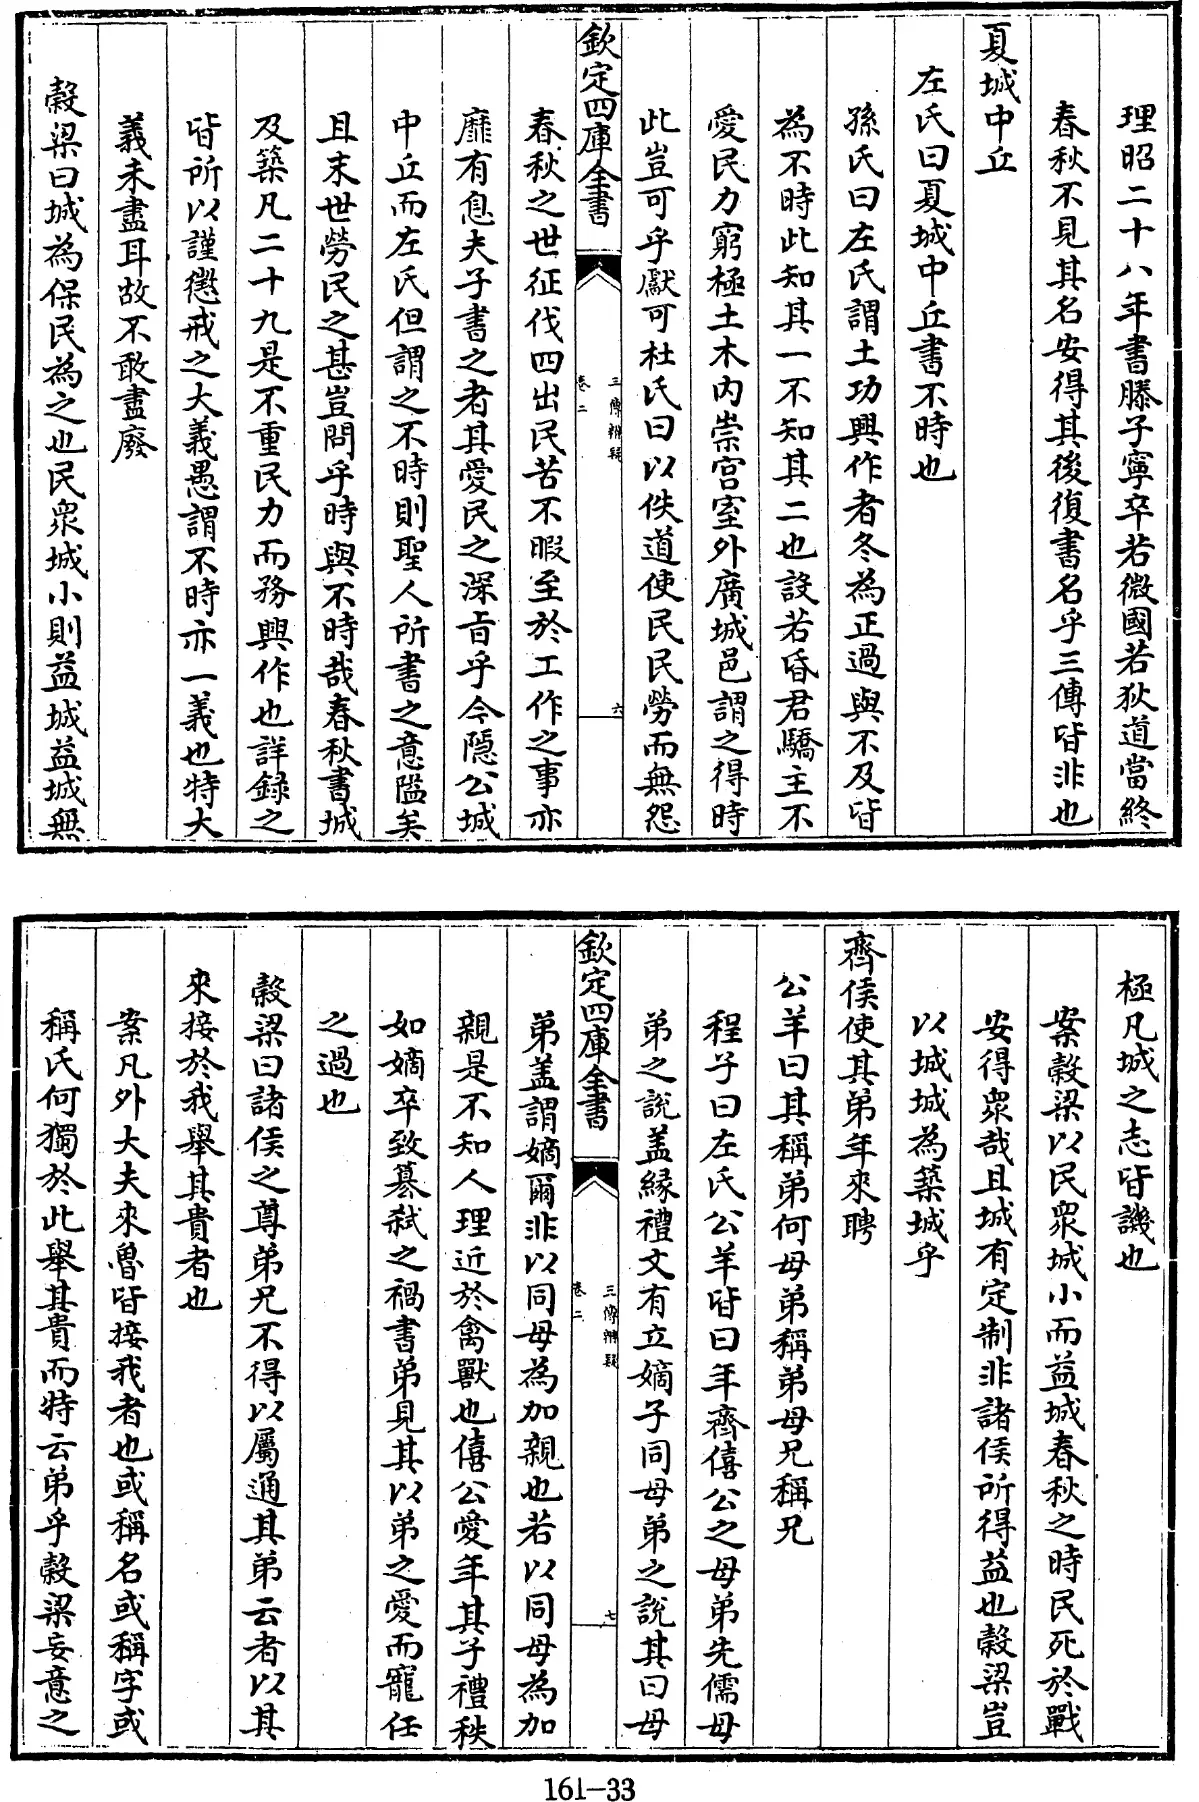 理昭二十八年書滕子寧卒若微國若狄道當終
春秋不見其名安得其後復書名乎三傳皆非也
夏城中丘
左氏曰夏城中丘書不時也
孫氏曰左氏謂土功興作者冬為正過與不及皆
為不時此知其一不知其二也設若昏君驕主不
愛民力窮極土木内崇宮室外廣城邑謂之得時
此豈可乎獻可杜氏曰以佚道使民民勞而無怨
欽定四庫全書
三傳辨疑
卷二
六
春秋之世征伐四出民苦不暇至於工作之事亦
靡有息夫子書之者其愛民之深旨乎今隠公城
中丘而左氏但謂之不時則聖人所書之意隘矣
且末世勞民之甚豈問乎時與不時哉春秋書城
及築凡二十九是不重民力而務興作也詳録之
皆所以謹懲戒之大義愚謂不時亦一義也特大
義未盡耳故不敢盡廢
榖梁曰城為保民為之也民衆城小則益城益城無
極凡城之志皆譏也
案榖梁以民衆城小而益城春秋之時民死於戰
安得衆哉且城有定制非諸侯所得益也榖梁豈
以城城為築城乎
齊侯使其弟年來聘
公羊曰其稱弟何母弟稱弟母兄稱兄
程子曰左氏公羊皆曰年齊僖公之母弟先儒母
弟之説盖緣禮文有立嫡子同母弟之説其曰母
欽定四庫全書
三傳辨疑
卷二
七
弟盖謂嫡爾非以同母為加親也若以同母為加
親是不知人理近於禽獸也僖公愛年其子禮秩
如嫡卒致簒弑之禍書弟見其以弟之愛而寵任
之過也
榖梁曰諸侯之尊弟兄不得以屬通其弟云者以其
來接於我舉其貴者也
案凡外大夫來魯皆接我者也或稱名或稱字或
稱氏何獨於此舉其貴而特云弟乎榖梁妄意之
161-33